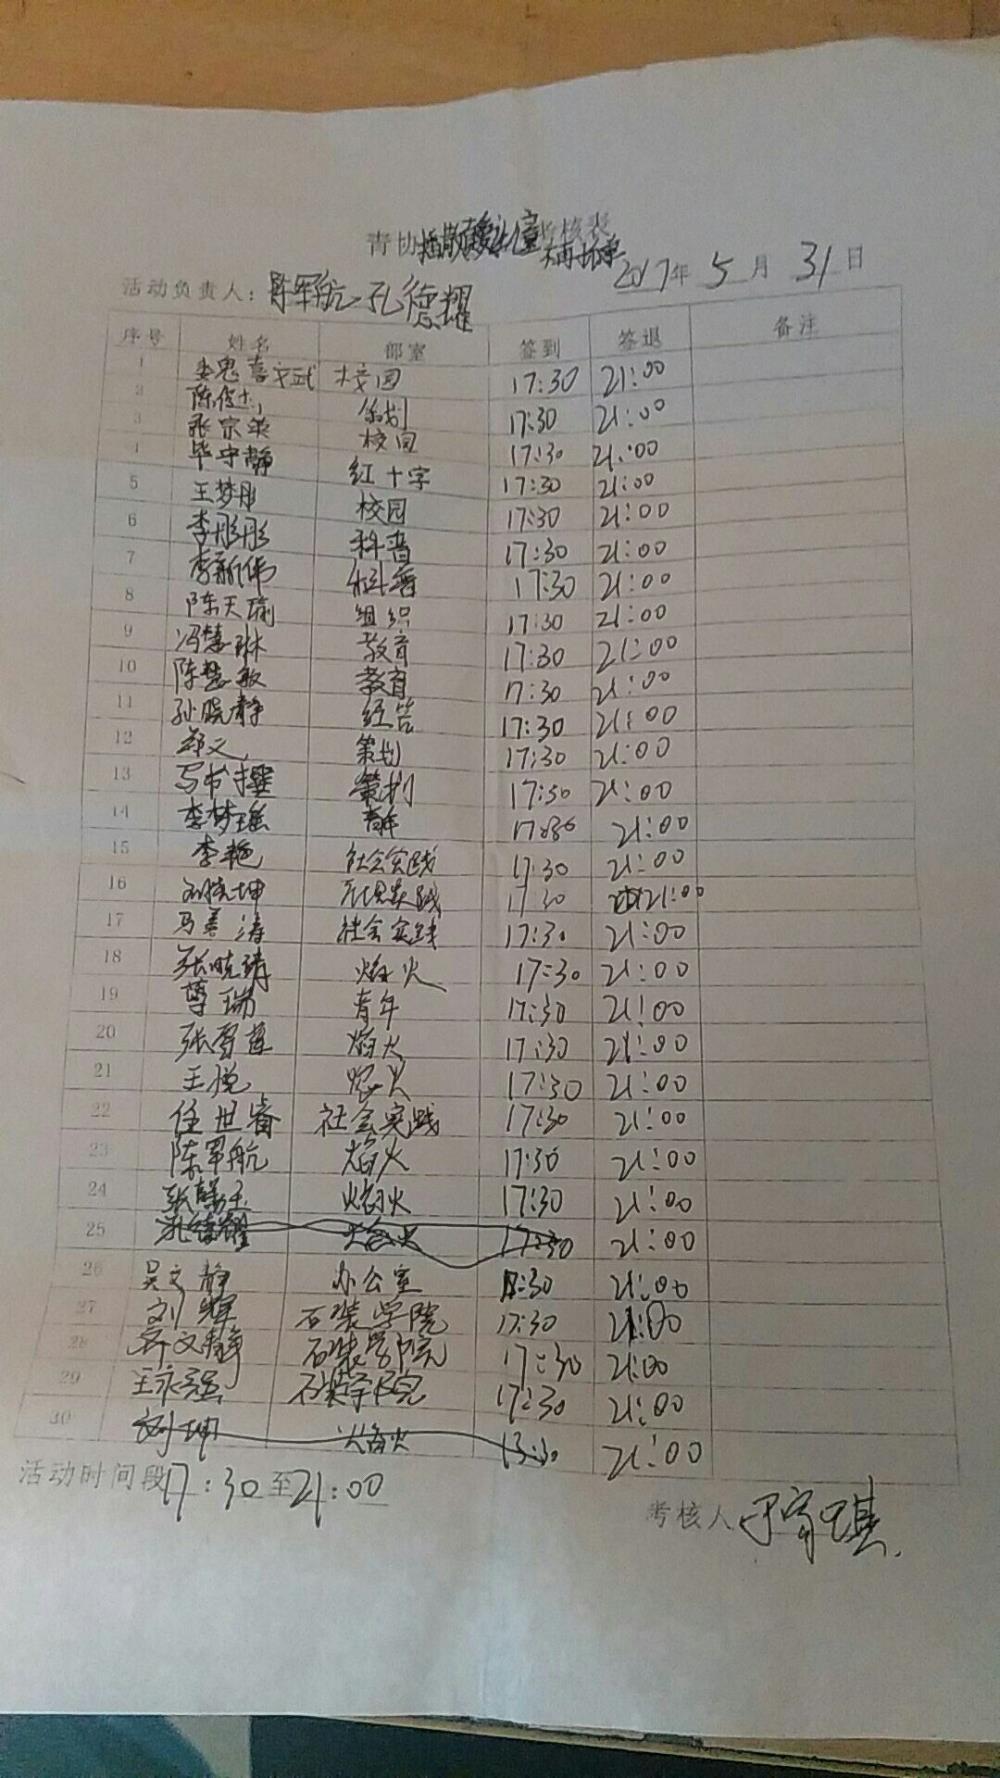 青协 考核表
2017年 5月 31日
活动负责人：陈军航 孔德耀
序号 姓名 部室 签到 签退 备注
1 娄思喜 校园 17:30 21:00
2 陈俊杰 策划 17:30 21:00
3 张宗英 校园 17:30 21:00
4 毕守静 红十字 17:30 21:00
5 王梦彤 校园 17:30 21:00
6 李彤彤 科普 17:30 21:00
7 李新伟 科普 17:30 21:00
8 陈天瑜 组织 17:30 21:00
9 冯慧琳 教育 17:30 21:00
10 陈慧敏 教育 17:30 21:00
11 孙晓静 17:30 21:00
12 郑文 策划 17:30 21:00
13 策划 17:30 21:00
14 李梦瑶 青年 17:30 21:00
15 李艳 社会实践 17:30 21:00
16 刘晓坤 社会实践 17:30 21:00
17 马善涛 社会实践 17:30 21:00
18 张晓靖 焰火 17:30 21:00
19 瑞 青年 17:30 21:00
20 张雪 焰火 17:30 21:00
21 王悦 焰火 17:30 21:00
22 任世睿 社会实践 17:30 21:00
23 陈军航 焰火 17:30 21:00
24 张 焰火 17:30 21:00
25 孔德耀 焰火 17:30 21:00
26 吴文静 办公室 17:30 21:00
27 刘辉 石装学院 17:30 21:00
28 齐文静 石装学院 17:30 21:00
29 王永强 石装学院 17:30 21:00
30 刘坤 焰火 21:00
活动时间段17:30至21:00
考核人